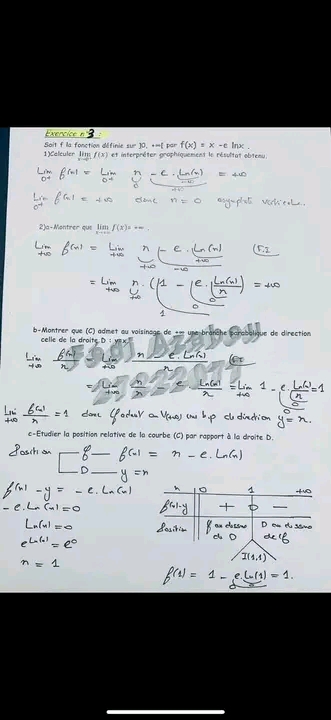 Exercice n°3 :
Soit f la fonction définie sur ]0, +∞[ par f(x) = x -e lnx .
1)Calculer lim f(x) et interpréter graphiquement le résultat obtenu.
Lim f(x) = Lim x - e. Ln(x) = +∞
0+ 0+
Lim f(x) = +∞ donc x = 0 asymptote verticale.
0+
2)a-Montrer que lim f(x)= +∞ .
Lim f(x) = Lim x - e. Ln(x) (F.I
+∞ +∞ +∞
= Lim x . (1 - e. Ln(x)/x) = +∞
+∞ +∞ 1 0
b-Montrer que (C) admet au voisinage de +∞ une branche parabolique de direction
celle de la droite D : y=x
Fadi Azabou
27922077
Lim f(x)/x = Lim x - e. Ln(x) / x F.I
+∞ +∞
= Lim x/x - e Ln(x)/x = Lim 1 - e. Ln(x)/x = 1
+∞ +∞ 0
Lim f(x)/x = 1 donc f admet au V(+∞) une b.p de direction y = x.
+∞
c-Etudier la position relative de la courbe (C) par rapport à la droite D.
Position f f(x) = x - e. Ln(x)
D y = x
f(x) - y = - e. Ln(x)
- e. Ln(x) = 0
Ln(x) = 0
e^Ln(x) = e^0
x = 1
x 0 1 +∞
f(x)-y + 0 -
Position f au dessus de D D au dessus de f
I(1,1)
f(1) = 1 - e. Ln(1) = 1.
0